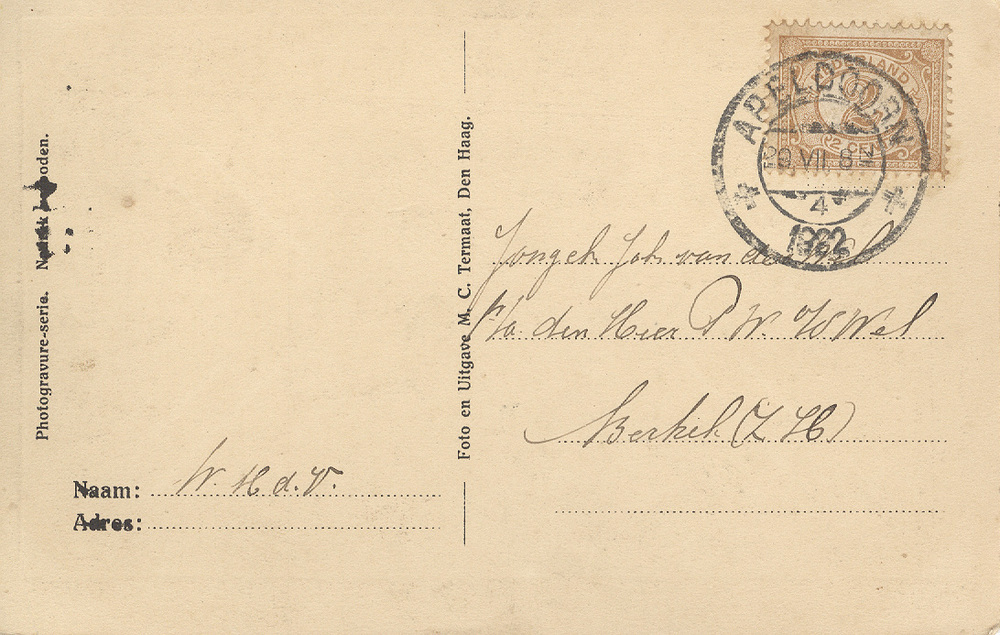 Photogravure-serie. Nadruk verboden.
Naam: W. H. d. V.
Adres:
Foto en Uitgave M. C. Termaat, Den Haag.
NEDERLAND
2
2 CENT
APELDOORN
VII 8
4
1922
Jongeh Joh van der
p/a den Heer P W. V Wel
Berkel (Z H)